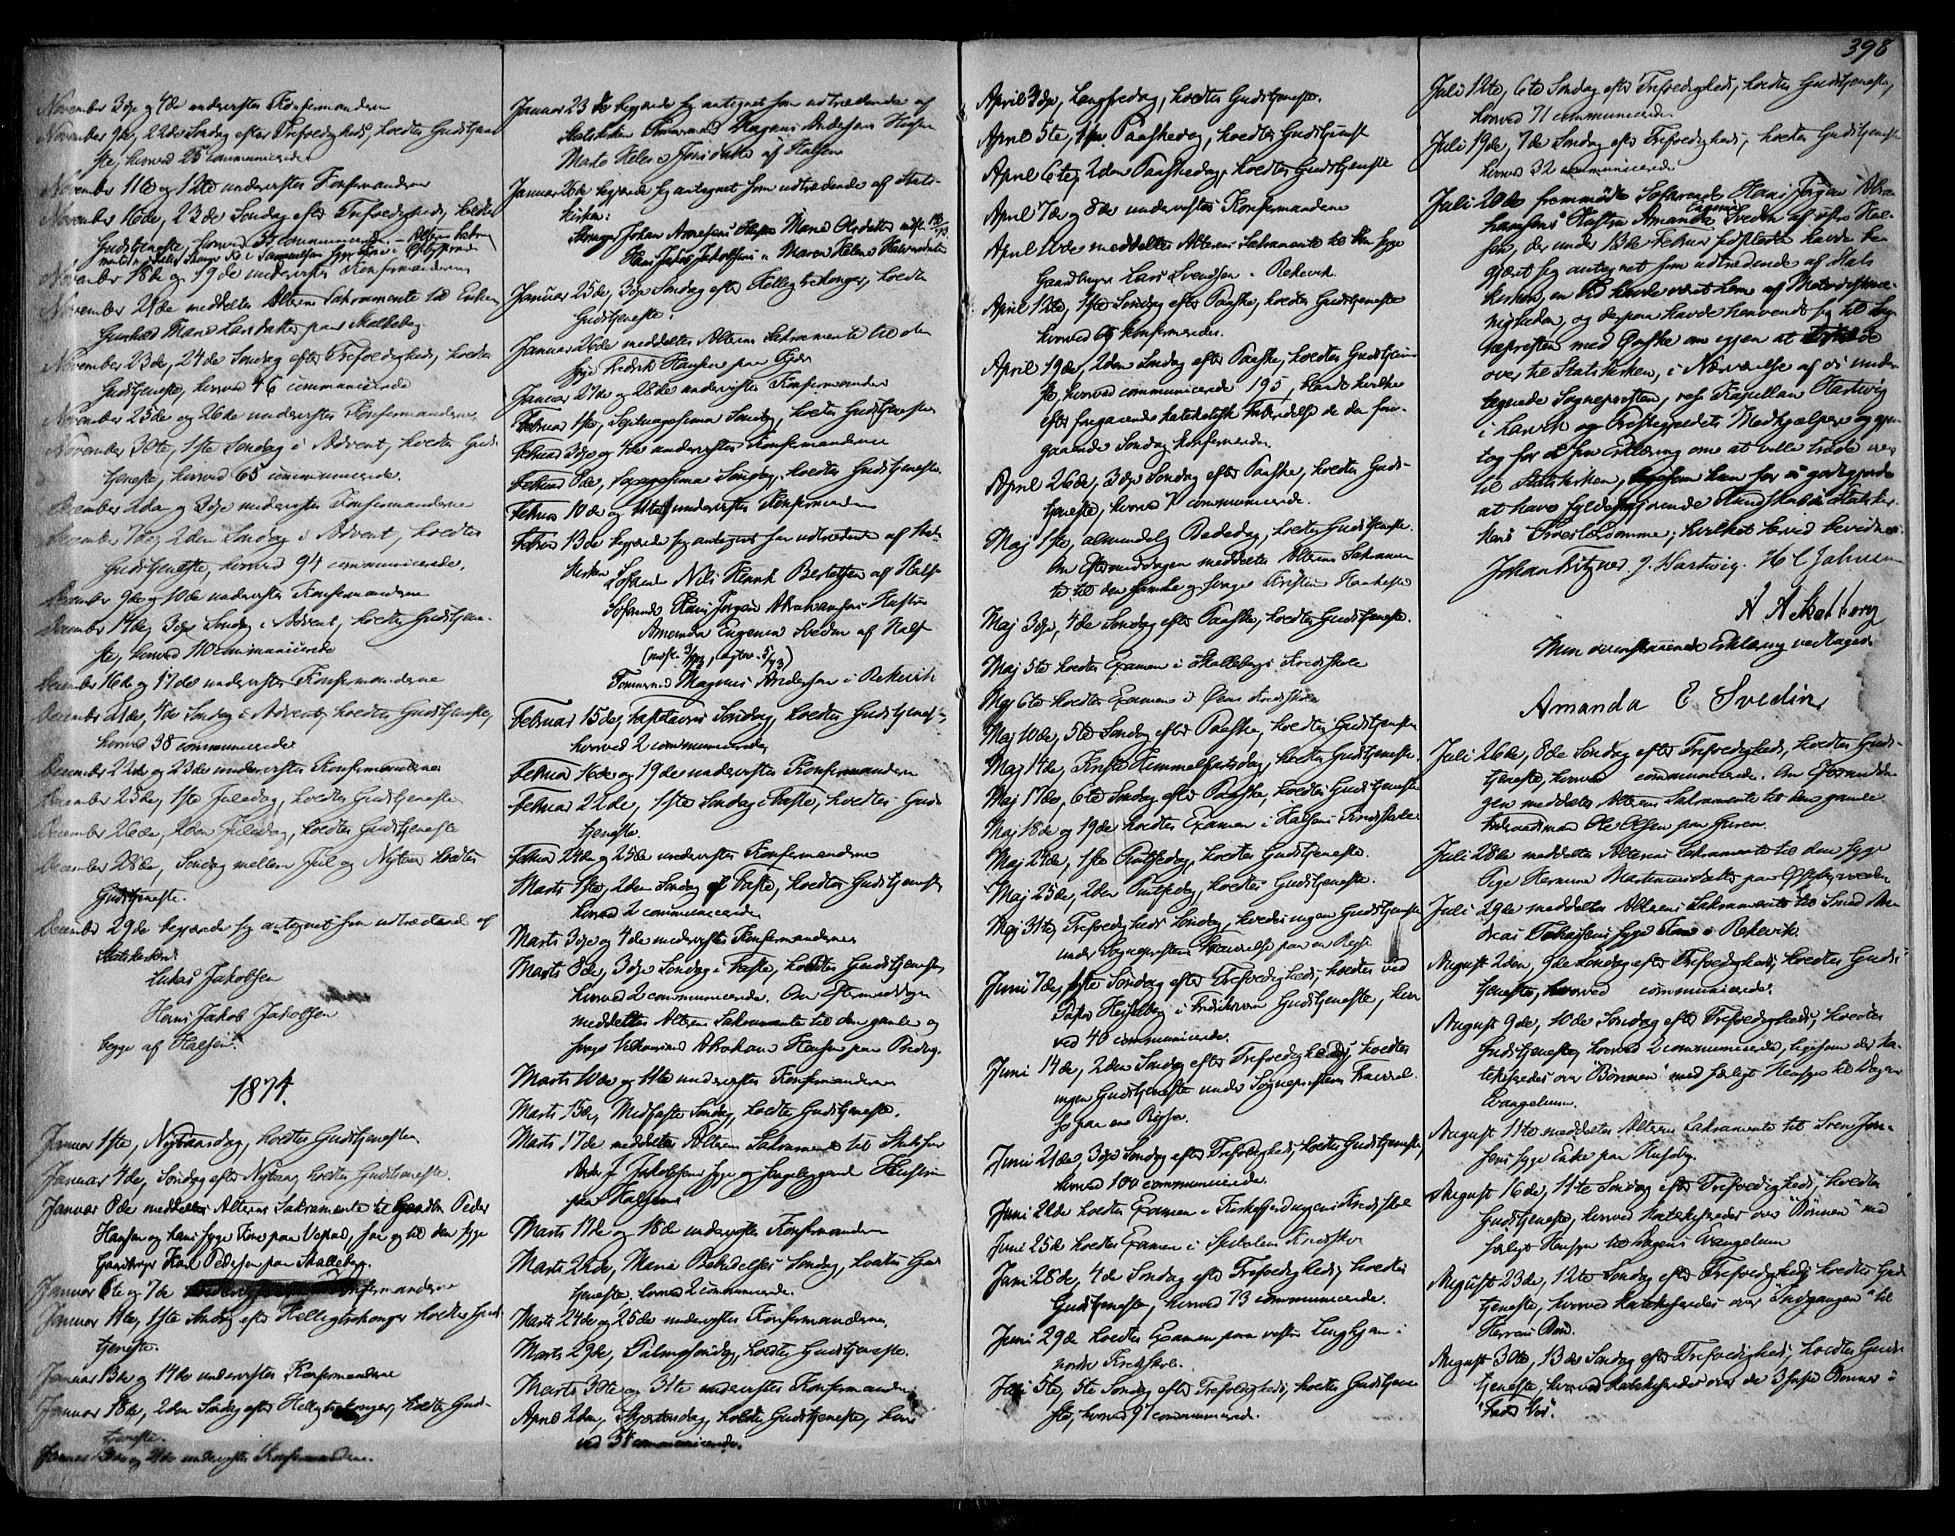 398
November 3die og 4de underviistes Konfirmanderne
November 9de, 22de Søndag efter Trefoldighed, holdtes Gudstjene-
ste, hvorved 25 communicerede
November 11te og 12te underviistes Konfirmanderne
November 16de, 23de Søndag efter Trefoldighed, holdtes
Gudstjeneste, hvorved 35 communicerede. – Altrens Sakra
November 18de og 19de underviistes Konfirmanderne
November 21de meddeltes Altrens Sakramente til Enken
Gunhild Marie Larsdatter paa Skalleberg
November 23de, 24de Søndag efter Trefoldighed, holdtes
Gudstjeneste, hvorved 46 communicerede
November 25de og 26de underviistes Konfirmanderne.
November 30te, 1ste Søndag i Advent, holdtes Guds-
tjeneste, hvorved 65 communicerede.
December 2den og 3die underviistes Konfirmanderne
December 7de, 2den Søndag i Advent, holdtes
Gudstjeneste, hvorved 94 communicerede.
December 9de og 10de underviistes Konfirmanderne
December 14de, 3die Søndag i Advent, holdtes Gudstjene-
ste, hvorved 110 communicerede
December 16de og 17de underviistes Konfirmanderne
December 21de, 4de Søndag i Advent, holdtes Gudstjeneste,
hvorved 38 communicerede
December 22de og 23de underviistes Konfirmanderne
December 25de, 1ste Juledag, holdtes Gudstjeneste
December 26de, 2den Juledag, holdtes Gudstjeneste
December 28de, Søndag mellem Jul og Nytaar holdtes
Gudstjeneste.
December 29de begjærede sig antegnet som udtrædende af
Statskirken:
Lukas Jakobsen
Hans Jakob Jakobsen
begge af Halsen.
1874.
Januar 1ste, Nytaarsdag, holdtes Gudstjeneste
Januar 4de, Søndag efter Nytaar, holdtes Gudstjeneste.
Januar 8de meddeltes Altrens Sakramente til Peder
Hansen og hans syge Kone paa Vestad, saa og til den syge
Gaardbruger Karl Pedersen paa Skalleberg.
Januar 6te og 7de Konfirmanderne
Januar 11te, 1ste Søndag efter Helligtrekonger holdtes Guds
tjeneste.
Januar 13de og 14de underviistes Konfirmanderne
Januar 18de, 2den Søndag efter Helligtrekonger, holdtes Guds-
tjeneste.
Januar 20de og 21de underviistes Konfirmanderne.
Januar 23de begjærede sig antegnet som udtrædende af
Statskirken Tømmermand Magnus Andersens Hustru
Marte Helene Jonsdatter af Halsen
Januar 26de begjærede sig antegnet som udtrædende af Stats-
kirken:
Johan Hustru Maria Olsdatter
Hans Jakob Jakobsens Maren Helene
Januar 25de, 3die Søndag efter Helligtrekonger, holdtes
Gudstjeneste.
Januar 26de meddeltes Altrens Sakramente til den
syge Fredrik Hansen paa
Januar 27de og 28de underviistes Konfirmanderne
Februar 1ste, Septuagesima Søndag, holdtes Gudstjeneste
Februar 3die og 4de underviistes Konfirmanderne
Februar 8de, Sexagesima Søndag, holdtes Gudstjeneste.
Februar 10de og 11te underviistes Konfirmanderne
Februar 13de begjærede sig antegnet som udtrædende af Stats-
kirken Søfarende Nils Henrik Bertelsen af Halsen
Søfarende Hans Jørgen Abrahamsens Hustru
Amanda Eugenia Svedin af Halsen
Tømmermand Magnus Andersen i Rekevik
Februar 15de, Fastelavns Søndag, holdtes Gudstjeneste,
hvorved 2 communicerede
Februar 18de og 19de underviistes Konfirmanderne
Februar 22de, 1ste Søndag i Faste, holdtes Guds-
tjeneste.
Februar 24de og 25de underviistes Konfirmanderne
Marts 1ste, 2den Søndag i Faste, holdtes Gudstjeneste,
hvorved 2 communicerede
Marts 3die og 4de underviistes Konfirmanderne
Marts 8de, 3die Søndag i Faste, holdtes Gudstjeneste,
hvorved 2 communicerede. Om Eftermiddagen
meddeltes Altrens Sakramente til den gamle og
svage Abraham Hansen paa
Marts 10de og 11te underviistes Konfirmanderne
Marts 15de, Midfaste Søndag, holdtes Gudstjeneste.
Marts 17de meddeltes Altrens Sakramente til
Jakobsens syge og sengeliggende Hustru
paa Halsen
Marts 17de og 18de underviistes Konfirmanderne
Marts 22de, Maria Bebudelses Søndag, holdtes Guds
tjeneste, hvorved 2 communicerede.
Marts 24de og 25de underviistes Konfirmanderne.
Marts 29de, Palmesøndag, holdtes Gudstjeneste.
Marts 30te og 31te underviistes Konfirmanderne
April 2den, Skjærtorsdag, holdtes Gudstjeneste, hvor
ved 31 communicerede.
April 3die, Langfredag, holdtes Gudstjeneste.
April 5te, 1ste Paaskedag, holdtes Gudstjeneste
April 6te, 2den Paaskedag, holdtes Gudstjeneste
April 7de og 8de underviistes Konfirmanderne
April meddeltes Altrens Sakramente til den syge
Gaardbruger Lars Svendsen i Rekevik
April 12te, 1ste Søndag efter Paaske, holdtes Gudstjeneste
hvorved konfirmeredes.
April 19de, 2den Søndag efter Paaske, holdtes Gudstjene
ste, hvorved communicerede 195, blandt hvilke
efter foregaaende katekatisk de den fore-
gaaende Søndag konfirmerede.
April 26de, 3die Søndag efter Paaske, holdtes Guds-
tjeneste, hvorved 7 communicerede.
Maj 1ste, almindelig Bededag, holdtes Gudstjeneste.
Om Eftermiddagen meddeltes Altrens Sakramen
te til den gamle og svage
Maj 3die, 4de Søndag efter Paaske, holdtes Gudstjeneste.
Maj 5te holdtes Examen i Skallebergs Kredsskole
Maj 6te holdtes Examen i Kredsskole
Maj 10de, 5te Søndag efter Paaske, holdtes Gudstjeneste
Maj 14de, Kristi Himmelfartsdag, holdtes Gudstjeneste.
Maj 17de, 6te Søndag efter Paaske, holdtes Gudstjeneste
Maj 18de og 19de holdtes Examen i Halsens Kredsskole.
Maj 24de, 1ste Pintsedag, holdtes Gudstjeneste.
Maj 25de, 2den Pintsedag, holdtes Gudstjeneste.
Maj 31te, Trefoldigheds Søndag, holdtes ingen Gudstjeneste
under Sognepræstens Fraværelse paa en Rejse
Juni 7de, 1ste Søndag efter Trefoldighed, holdtes ved
Pastor i Fredriksværn Gudstjeneste, hvor
ved 40 communicerede.
Juni 14de, 2den Søndag efter Trefoldighed, holdtes
ingen Gudstjeneste under Sognepræstens Fraværel-
se paa en Rejse.
Juni 21de, 3die Søndag efter Trefoldighed, holdtes Gudstjeneste,
hvorved 100 communicerede.
Juni 22de holdtes Examen i Kredsskole
Juni 25de holdtes Examen i Kredsskole
Juni 28de, 4de Søndag efter Trefoldighed, holdtes
Gudstjeneste, hvorved 73 communicerede.
Juni 29de holdtes Examen paa vestre i
nordre Kredsskole.
Juli 5te, 5te Søndag efter Trefoldighed, holdtes Gudstjene
ste, hvorved 91 communicerede.
Juli 12te, 6te Søndag efter Trefoldighed, holdtes Gudstjeneste,
hvorved 71 communicerede
Juli 19de, 7de Søndag efter Trefoldighed, holdtes Gudstjeneste
hvorved 32 communicerede
Juli 20de fremmødte Søfarende Hans Jørgen Abra-
hamsens Hustru Amanda Eugenia Svedin af Hal-
sen, der under 13de Februar sidstleden havde be
gjæret sig antegnet som udtrædende af Stats
kirken, en Tid havde været Lem af Methodistme-
nigheden, og derpaa havde henvendt sig til Sog-
nepræsten med Ønske om igjen at
over til Statskirken, i Nærværelse af os under
tegnede Sognepræsten, res. Kapellan Hartwig
i Larvik og Præstegjældets Medhjælpere og
tog for sin Erklæring om at ville træde over
til Statskirken, ligesom hun for os godtgjorde
at have fyldestgjørende Kundskab i Statskir-
kens Troeslærdomme; hvilket herved bevidnes.
Johan Fritzner J. Hartwig. H C Johnsen
A A Skalleberg
Min ovenstaaende Erklæring vedtages.
Amanda E Svedin,
Juli 26de, 8de Søndag efter Trefoldighed, holdtes Guds-
tjeneste, hvorved communicerede. Om Eftermidda
gen meddeltes Altrens Sakramente til den gamle
Ole Olsen paa
Juli 28de meddeltes Altrens Sakramente til den syge
Pige Martinusdatter paa
Juli 29de meddeltes Altrens Sakramente til Smed An
dreas syge Kone i Rekevik.
August 2den, 9de Søndag efter Trefoldighed, holdtes Guds-
tjeneste, hvorved communicerede.
August 9de, 10de Søndag efter Trefoldighed, holdtes
Gudstjeneste, hvorved 2 communicerede, ligesom der ka-
tekiseredes over "Bønnen" med særligt Hensyn til Dagens
Evangelium.
August 11te meddeltes Altrens Sakramente til Svend Jon-
sens syge Enke paa Huseby.
August 16de, 11te Søndag efter Trefoldighed, holdtes
Gudstjeneste, hvorved katekiseredes over "Bønnen" med
særligt Hensyn til Dagens Evangelium
August 23de, 12te Søndag efter Trefoldighed, holdtes Guds
tjeneste, hvorved katekiseredes over "Indgangen" til
Herrens Bøn.
August 30te, 13de Søndag efter Trefoldighed, holdtes Guds-
tjeneste, hvorved katekiseredes over de 3 første Bønner i
"Fader Vor".